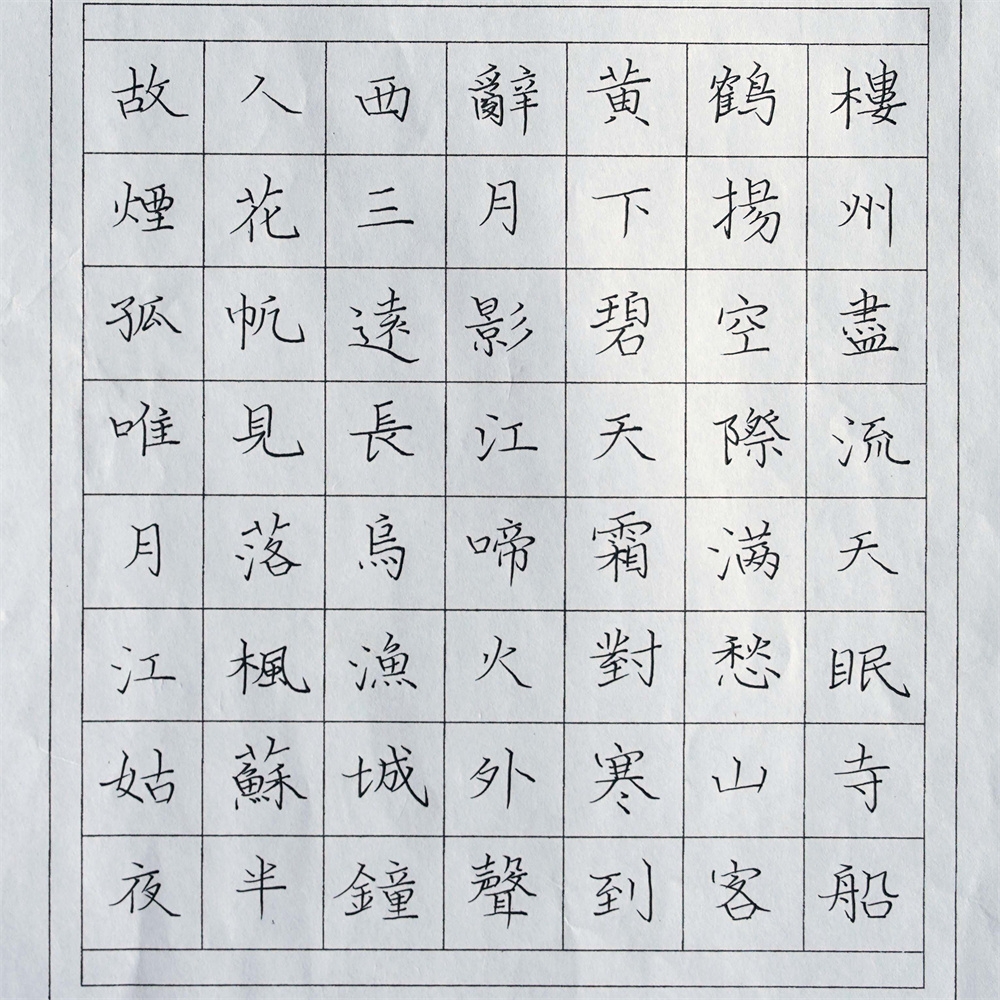 故人西辭黄鶴樓
煙花三月下揚州
孤帆遠影碧空盡
唯見長江天際流
月落烏啼霜滿天
江楓漁火對愁眠
姑蘇城外寒山寺
夜半鐘聲到客船